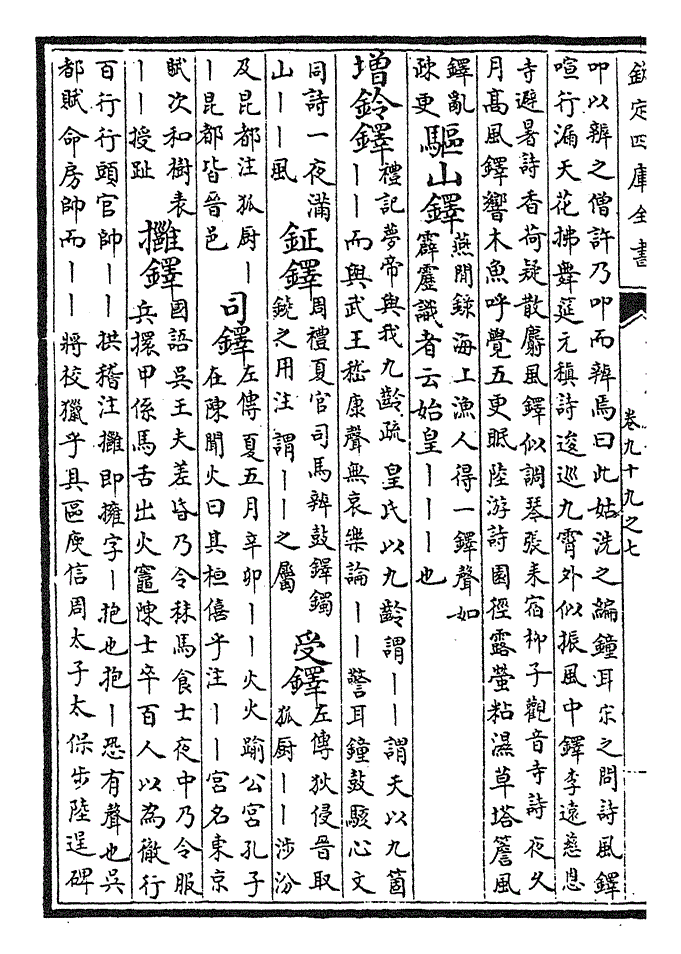 欽定四庫全書
卷九十九之七
叩以辨之僧許乃叩而辨焉曰此姑洗之編鐘耳宋之問詩風鐸
喧行漏天花拂舞筵元稹詩逡巡九霄外似振風中鐸李遠慈恩
寺避暑詩香荷疑散麝風鐸似調琴張耒宿柳子觀音寺詩夜久
月髙風鐸響木魚呼覺五更眠陸游詩園徑露螢粘濕草塔簷風
鐸亂
疎更
驅山鐸
燕閒録海上漁人得一鐸聲如
霹靂識者云始皇丨丨丨也
增鈴鐸
禮記夢帝與我九齡疏皇氏以九齡謂丨丨謂天以九箇
丨丨而與武王嵇康聲無哀樂論丨丨警耳鐘鼓駭心文
同詩一夜滿
山丨丨風
鉦鐸
周禮夏官司馬辨鼓鐸鐲
鐃之用注謂丨丨之屬
受鐸
左傳狄侵晉取
狐厨丨丨涉汾
及昆都注狐厨丨
丨昆都皆晉邑
司鐸
左傳夏五月辛卯丨丨火火踰公宮孔子
在陳聞火曰其桓僖乎注丨丨宮名東京
賦次和樹表
丨丨授趾
攡鐸
國語吳王夫差昏乃令秣馬食士夜中乃令服
兵擐甲係馬舌出火竈陳士卒百人以為徹行
百行行頭官帥丨丨拱稽注攡即擁字丨抱也抱丨恐有聲也吳
都賦命房帥而丨丨將校獵乎具區庾信周太子太保步陸逞碑